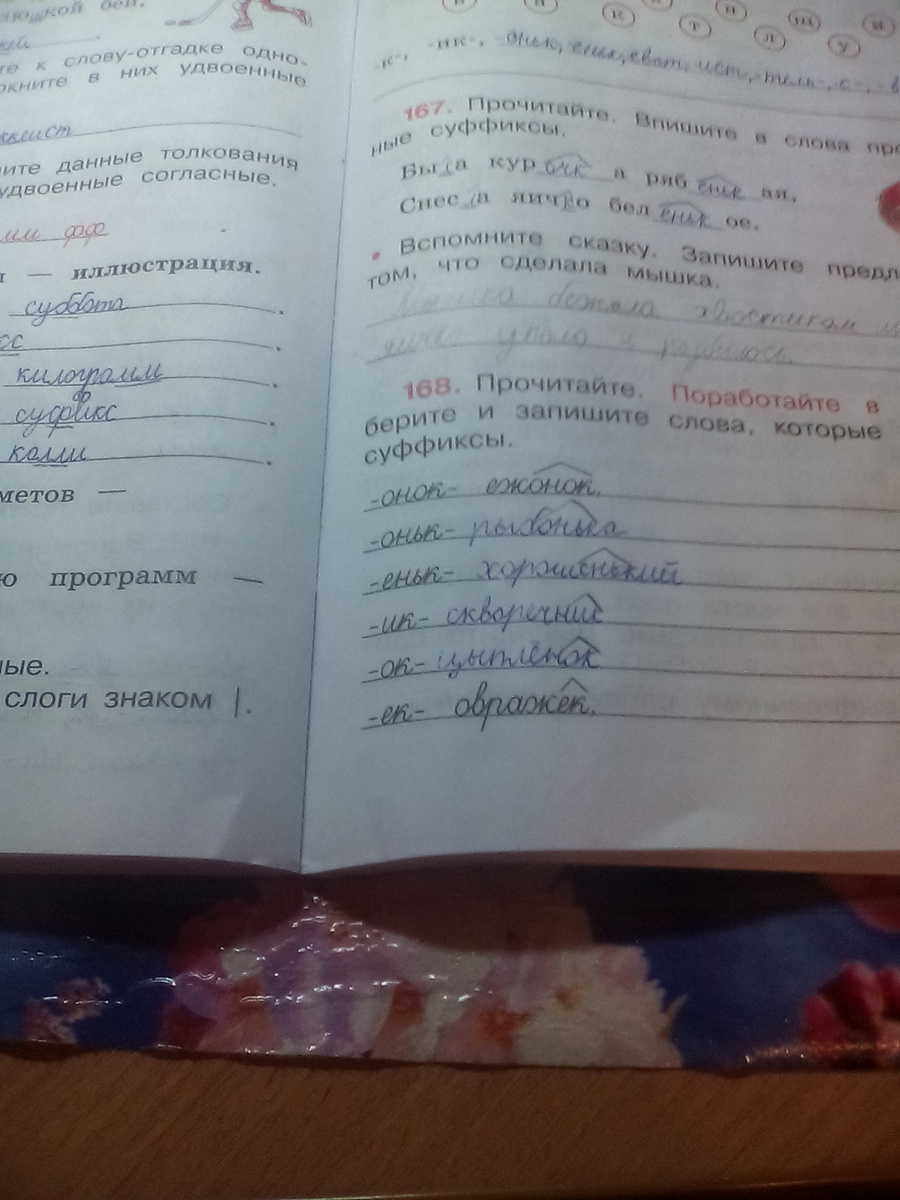 люшкой бей.
те к слову-отгадке одно-
ркните в них удвоенные
ите данные толкования
удвоенные согласные.
мм фф
— иллюстрация.
суббота.
сс.
килограмм.
суффикс.
метов —
ю программ —
ные.
слоги знаком |.
к т н л ш у й
-к-, -ик-, -оньк, еньк, еват, ист, -тель-, -с-, -в
167. Прочитайте. Впишите в слова про
ные суффиксы.
Была курочка рябенькая,
Снесла яичко беленькое.
• Вспомните сказку. Запишите предл
том, что сделала мышка.
Мышка бежала хвостиком м
яичко упало и
168. Прочитайте. Поработайте в
берите и запишите слова, которые
суффиксы.
-онок- ежонок.
-оньк- рыбонька
-еньк- хорошенький
-ик- скворечник
-ок- цыплёнок
-ек- овражек.